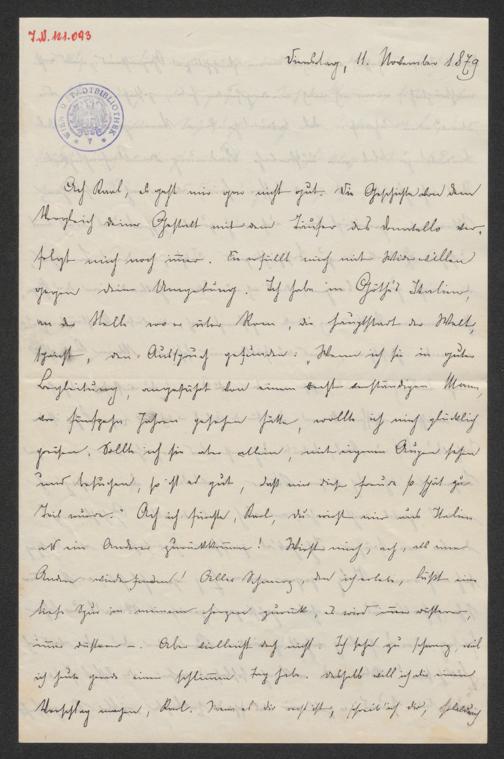 J.N. 121.093
WIEN. STADTBIBLIOTHEK
Dienstag, 11. November 1879
Ach Karl, es geht mir gar nicht gut. Die Geschichte von dem
Vergleich deiner Gestalt mit dem Täufer des Donatello ver-
folgt mich noch immer. Sie erfüllt mich mit Widerwillen
gegen deine Umgebung. Ich habe in Göthe's Italien,
an der Stelle wo er über Rom, die Hauptstadt der Welt,
spricht, den Ausspruch gefunden: „Wenn ich sie in guter
Begleitung, angeführt von einem recht verständigen Mann,
vor fünfzehn Jahren gesehen hätte, wollte ich mich glücklich
preisen. Sollte ich sie aber allein, mit eigenen Augen sehen
und besuchen, so ist es gut, daß mir diese Freude so spät zu
Teil wurde." Ach ich fürchte, Karl, du wirst mir aus Italien
als ein Anderer zurückkommen! Wirst mich, ach, als eine
Andere wiederfinden! Aller Schmerz, den ich erlebe, läßt eine
tiefe Spur in meinem Herzen zurück, es wird immer düsterer,
immer düsterer –. Aber vielleicht doch nicht. Ich sehe zu schwarz, weil
ich heute gerade einen schlimmen Tag habe. Deshalb will ich dir einen
Vorschlag machen, Karl. Wenn es dir recht ist, schreib ich dir,